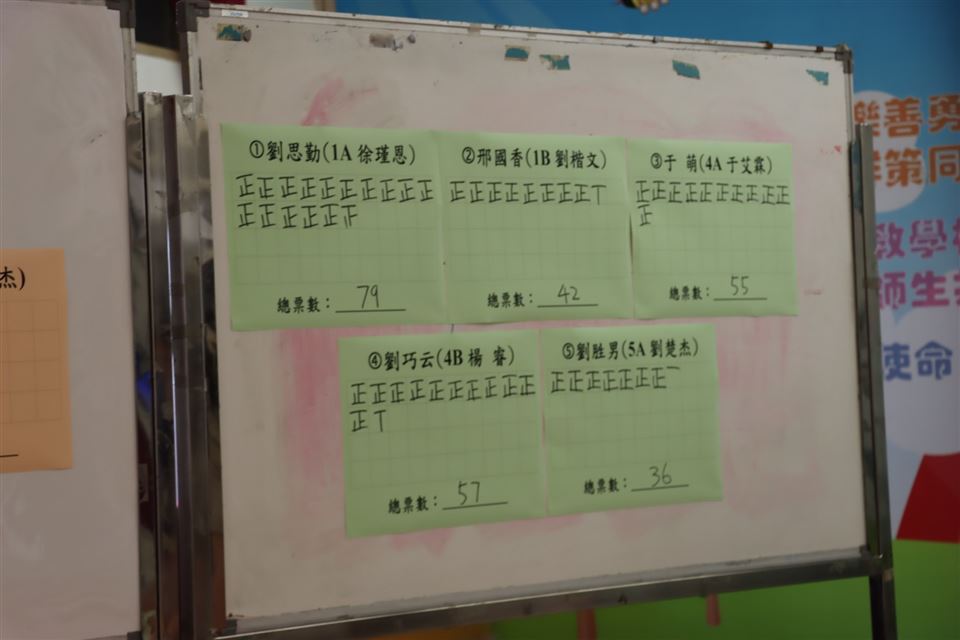 杰)
①劉思勤(1A 徐瑾恩)
正正正正正正正正正正
正正正正正下
總票數：79
②邢國香(1B 劉楷文)
正正正正正正正正丅
總票數：42
③于 萌(4A 于艾霖)
正正正正正正正正正正
正
總票數：55
④劉巧云(4B 楊 睿)
正正正正正正正正正正
正丅
總票數：57
⑤劉胜男(5A 劉楚杰)
正正正正正正正一
總票數：36
樂善勇
策同
教學
師生
使命